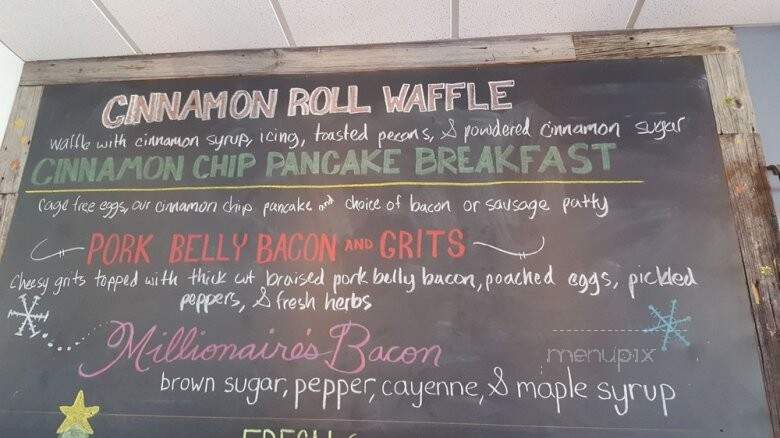 CINNAMON ROLL WAFFLE
waffle with cinnamon syrup, icing, toasted pecans, & powdered cinnamon sugar
CINNAMON CHIP PANCAKE BREAKFAST
Cage free eggs, our cinnamon chip pancake and choice of bacon or sausage patty
PORK BELLY BACON AND GRITS
Cheesy grits topped with thick cut braised pork belly bacon, poached eggs, pickled
peppers, & fresh herbs
Millionaire's Bacon
menupix
brown sugar, pepper, cayenne, & maple syrup